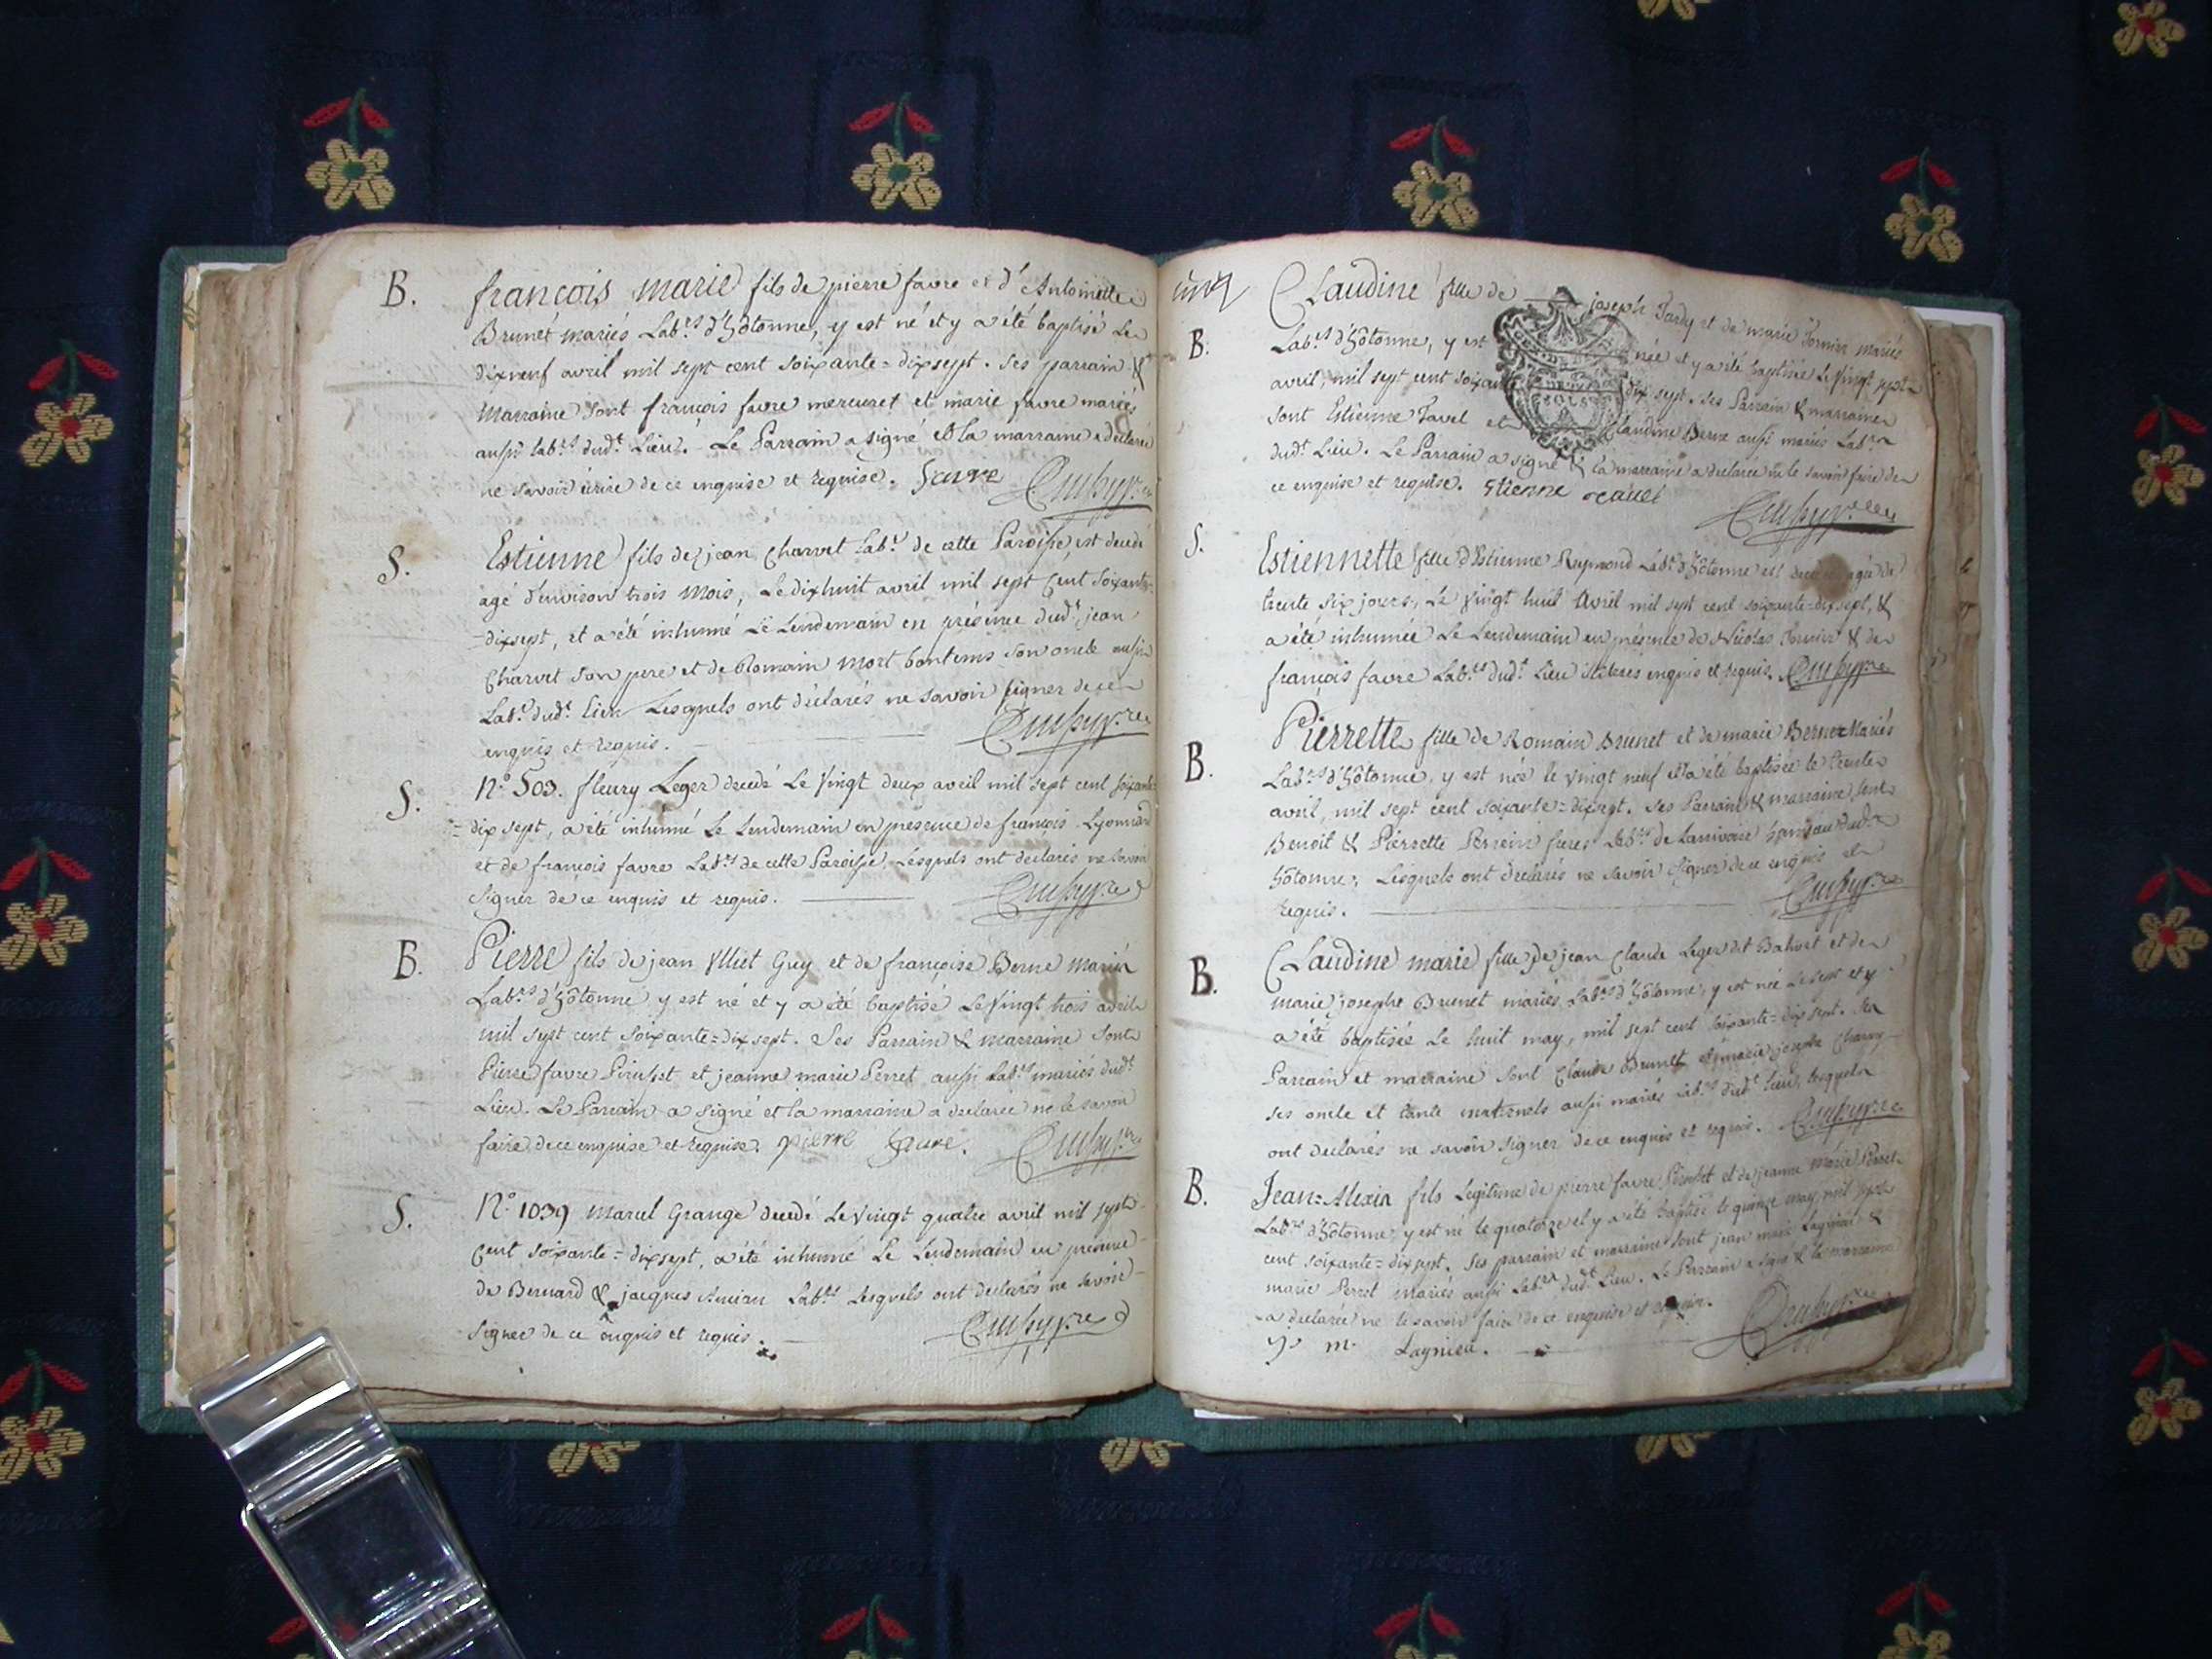 B. françois marie fils de pierre favre et d'Antoinette
Brunet mariés Lab.rs d'hôtonne, y est né et y a été baptisé le
dixneuf avril mil sept cent soixante=dixsept. Ses parrain &
marraine sont françois favre mercuret et marie favre mariés
aussi lab.rs dud.t Lieu. Le Parrain a signé et la marraine a déclaré
ne savoir écrire de ce enquise et requise. favre
S. Estienne fils de jean Charvet Lab.r de cette Paroisse, est decedé
agé d'environ trois mois, Le dixhuit avril mil sept Cent soixante=
=dixsept, et a été inhumé Le Lendemain en présence dud.t jean
Charvet son pere et de Romain mort bontems son oncle aussi
Lab.r dud.t Lieu Lesquels ont déclarés ne savoir signer de ce
enquis et requis.
S. N.o 503. fleury Leger decedé Le Vingt deux avril mil sept cent soixante
=dix sept, a été inhumé Le Lendemain en presence de françois Lyonnard
et de françois favre Lab.rs de cette Paroisse, Lesquels ont declarés ne savoir
signer de ce enquis et requis.
B. Pierre fils de jean Vlliet Guy et de françoise Berne mariés
Lab.rs d'hôtonne y est né et y a été baptisé Le Vingt trois avril
mil sept cent soixante=dix sept. Ses Parrain & marraine sont
Pierre favre et jeanne marie Perret aussi Lab.rs mariés dud.t
Lieu. Le Parrain a signé et la marraine a declarée ne le savoir
faire de ce enquise et requise. pierre favre.
S. N.o 1039 marcel Grange decedé Le Vingt quatre avril mil sept
Cent soixante=dixsept, a été inhumé Le Lendemain en presence
de Bernard & jacques Lab.rs Lesquels ont declarés ne savoir
signer de ce enquis et requis.
Claudine fille de joseph Tardy et de marie mariés
B. Lab.rs d'hôtonne, y est née et y a été baptisée Le Vingt sept
avril, mil sept cent soixante dix sept. Ses Parrain & marraine
sont Estienne Favel et Claudine Berne aussi mariés Lab.rs
dud.t Lieu. Le Parrain a signé & la marraine a declarée ne le savoir faire de
ce enquise et requise. Stienne
S. Estiennette fille d'Estienne Reymond Lab.r d'hôtonne est decedée agée de
trente six jours, Le Vingt huit Avril mil sept cent soixante=dixsept, &
a été inhumée Le Lendemain en présence de Nicolas & de
françois favre Lab.rs dud.t Lieu illiteres enquis et requis.
B. Pierrette fille de Romain Brunet et de marie Berne Mariés
Lab.rs d'hôtonne, y est née le Vingt neuf et a été baptisée le trente
avril, mil sept cent soixante=dixsept. Ses Parrain & marraine sont
Benoit & Pierrette Perrein freres Lab.rs de hameau dud.t
hôtonne, Lesquels ont declarés ne savoir signer de ce enquis et
requis.
B. Claudine marie fille de jean Claude Leger dit Bahuet et de
marie josephe Brunet mariés Lab.rs d'hôtonne, y est née Le sept et y
a été baptisée Le huit may, mil sept cent soixante=dix sept. Ses
Parrain et marraine sont Claude Brunet et marie josephe
ses oncle et tante maternels aussi mariés Lab.rs dud.t Lieu, lesquels
ont declarés ne savoir signer de ce enquis et requis.
B. Jean=Alexis fils Legitime de pierre favre et de jeanne marie Perret
Lab.rs d'hôtonne y est né le quatorze et y a été baptisé le quinze may, mil sept
cent soixante=dixsept. Ses parrain et marraine sont jean marie Laynieu &
marie Perret mariés aussi Lab.rs dud.t Lieu. Le Parrain a signé & la marraine
a declarée ne le savoir faire de ce enquise et requise.
j. m. Laynieu.